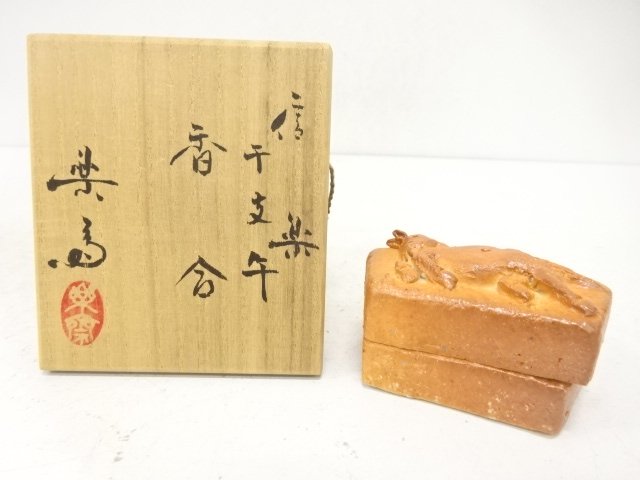 信楽
干支午
香合
楽斎
楽斎